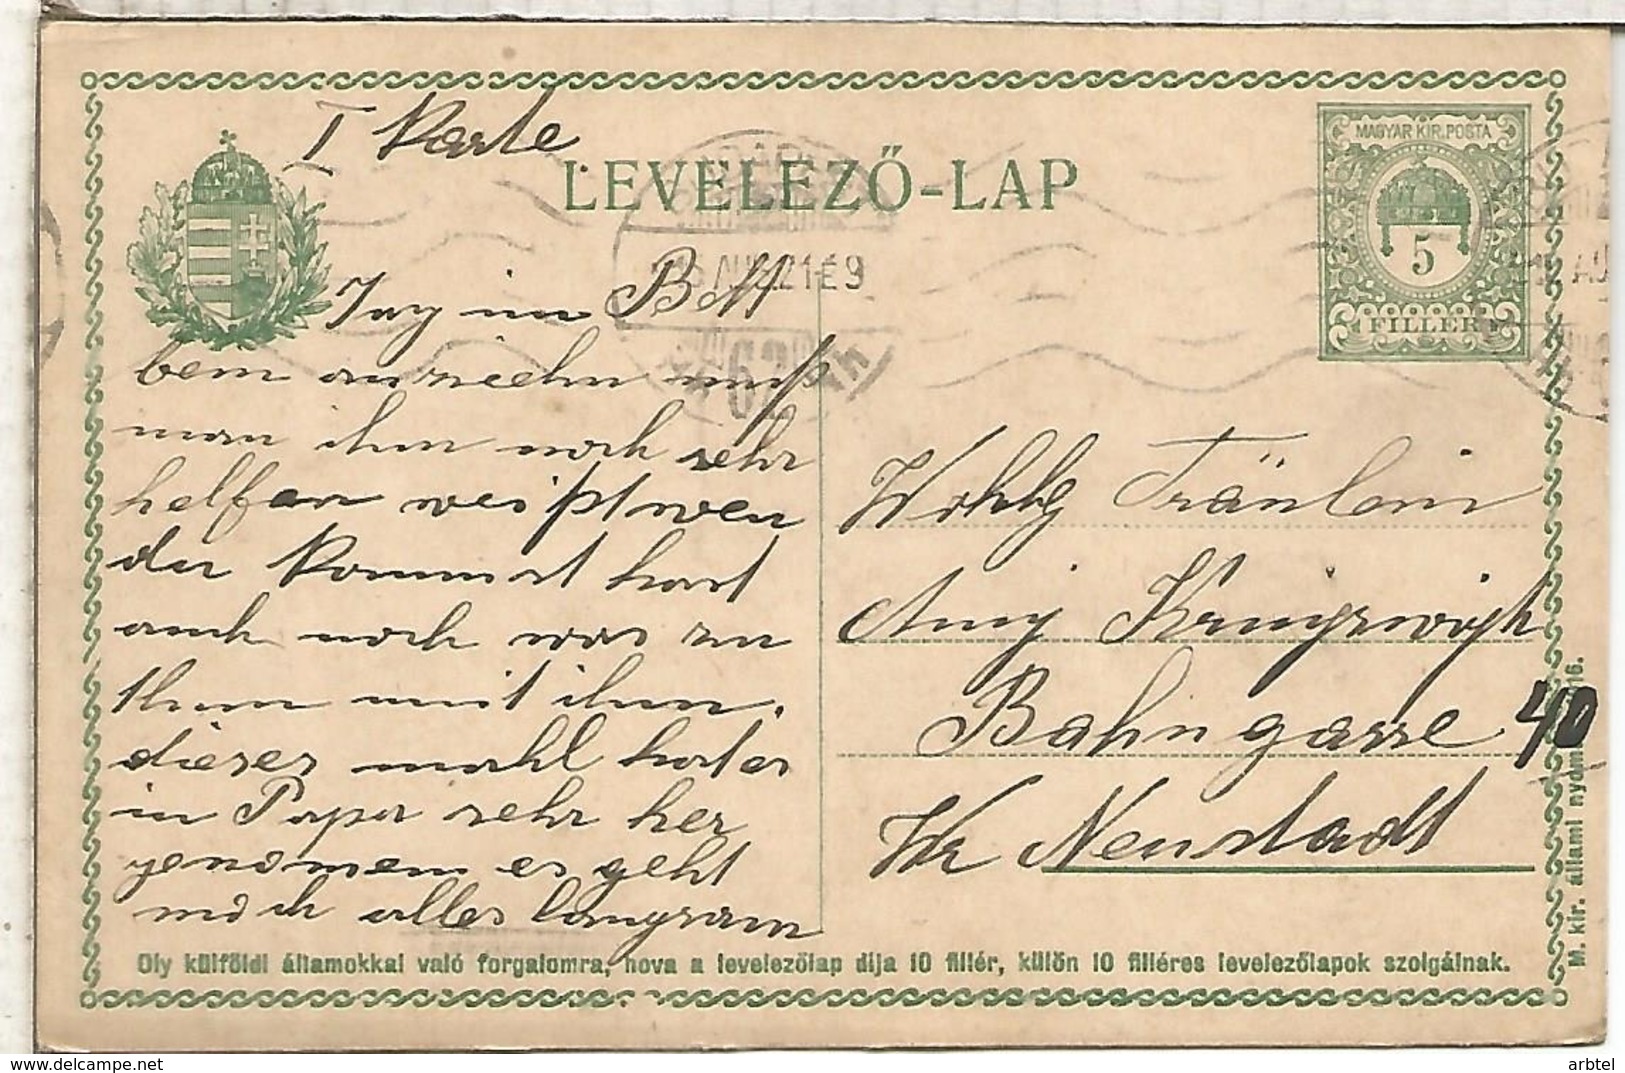 I Karte
LEVELEZŐ-LAP
MAGYAR KIR. POSTA
5
FILLÉR
916 AUG. 21-É9
62
Tag im Bett
beim anziehn muss
man ihm noch sehr
helfen weist wen
der kommst hast
auch noch was zu
thun mit ihm.
dieses mahl hat es
in Papa sehr her
genomem es geht
noch alles langsam
Wohlg Fräulein
Bahngasse 40
Wr Neustadt
Oly külföldi államokkal való forgalomra, hova a levelezőlap díja 10 fillér, külön 10 filléres levelezőlapok szolgálnak.
M. kir. állami nydma 16.
arbtel